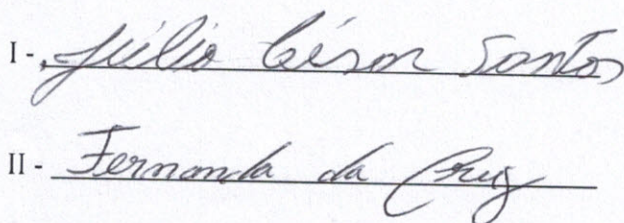 I - Júlio César Santos
II - Fernanda da Cruz